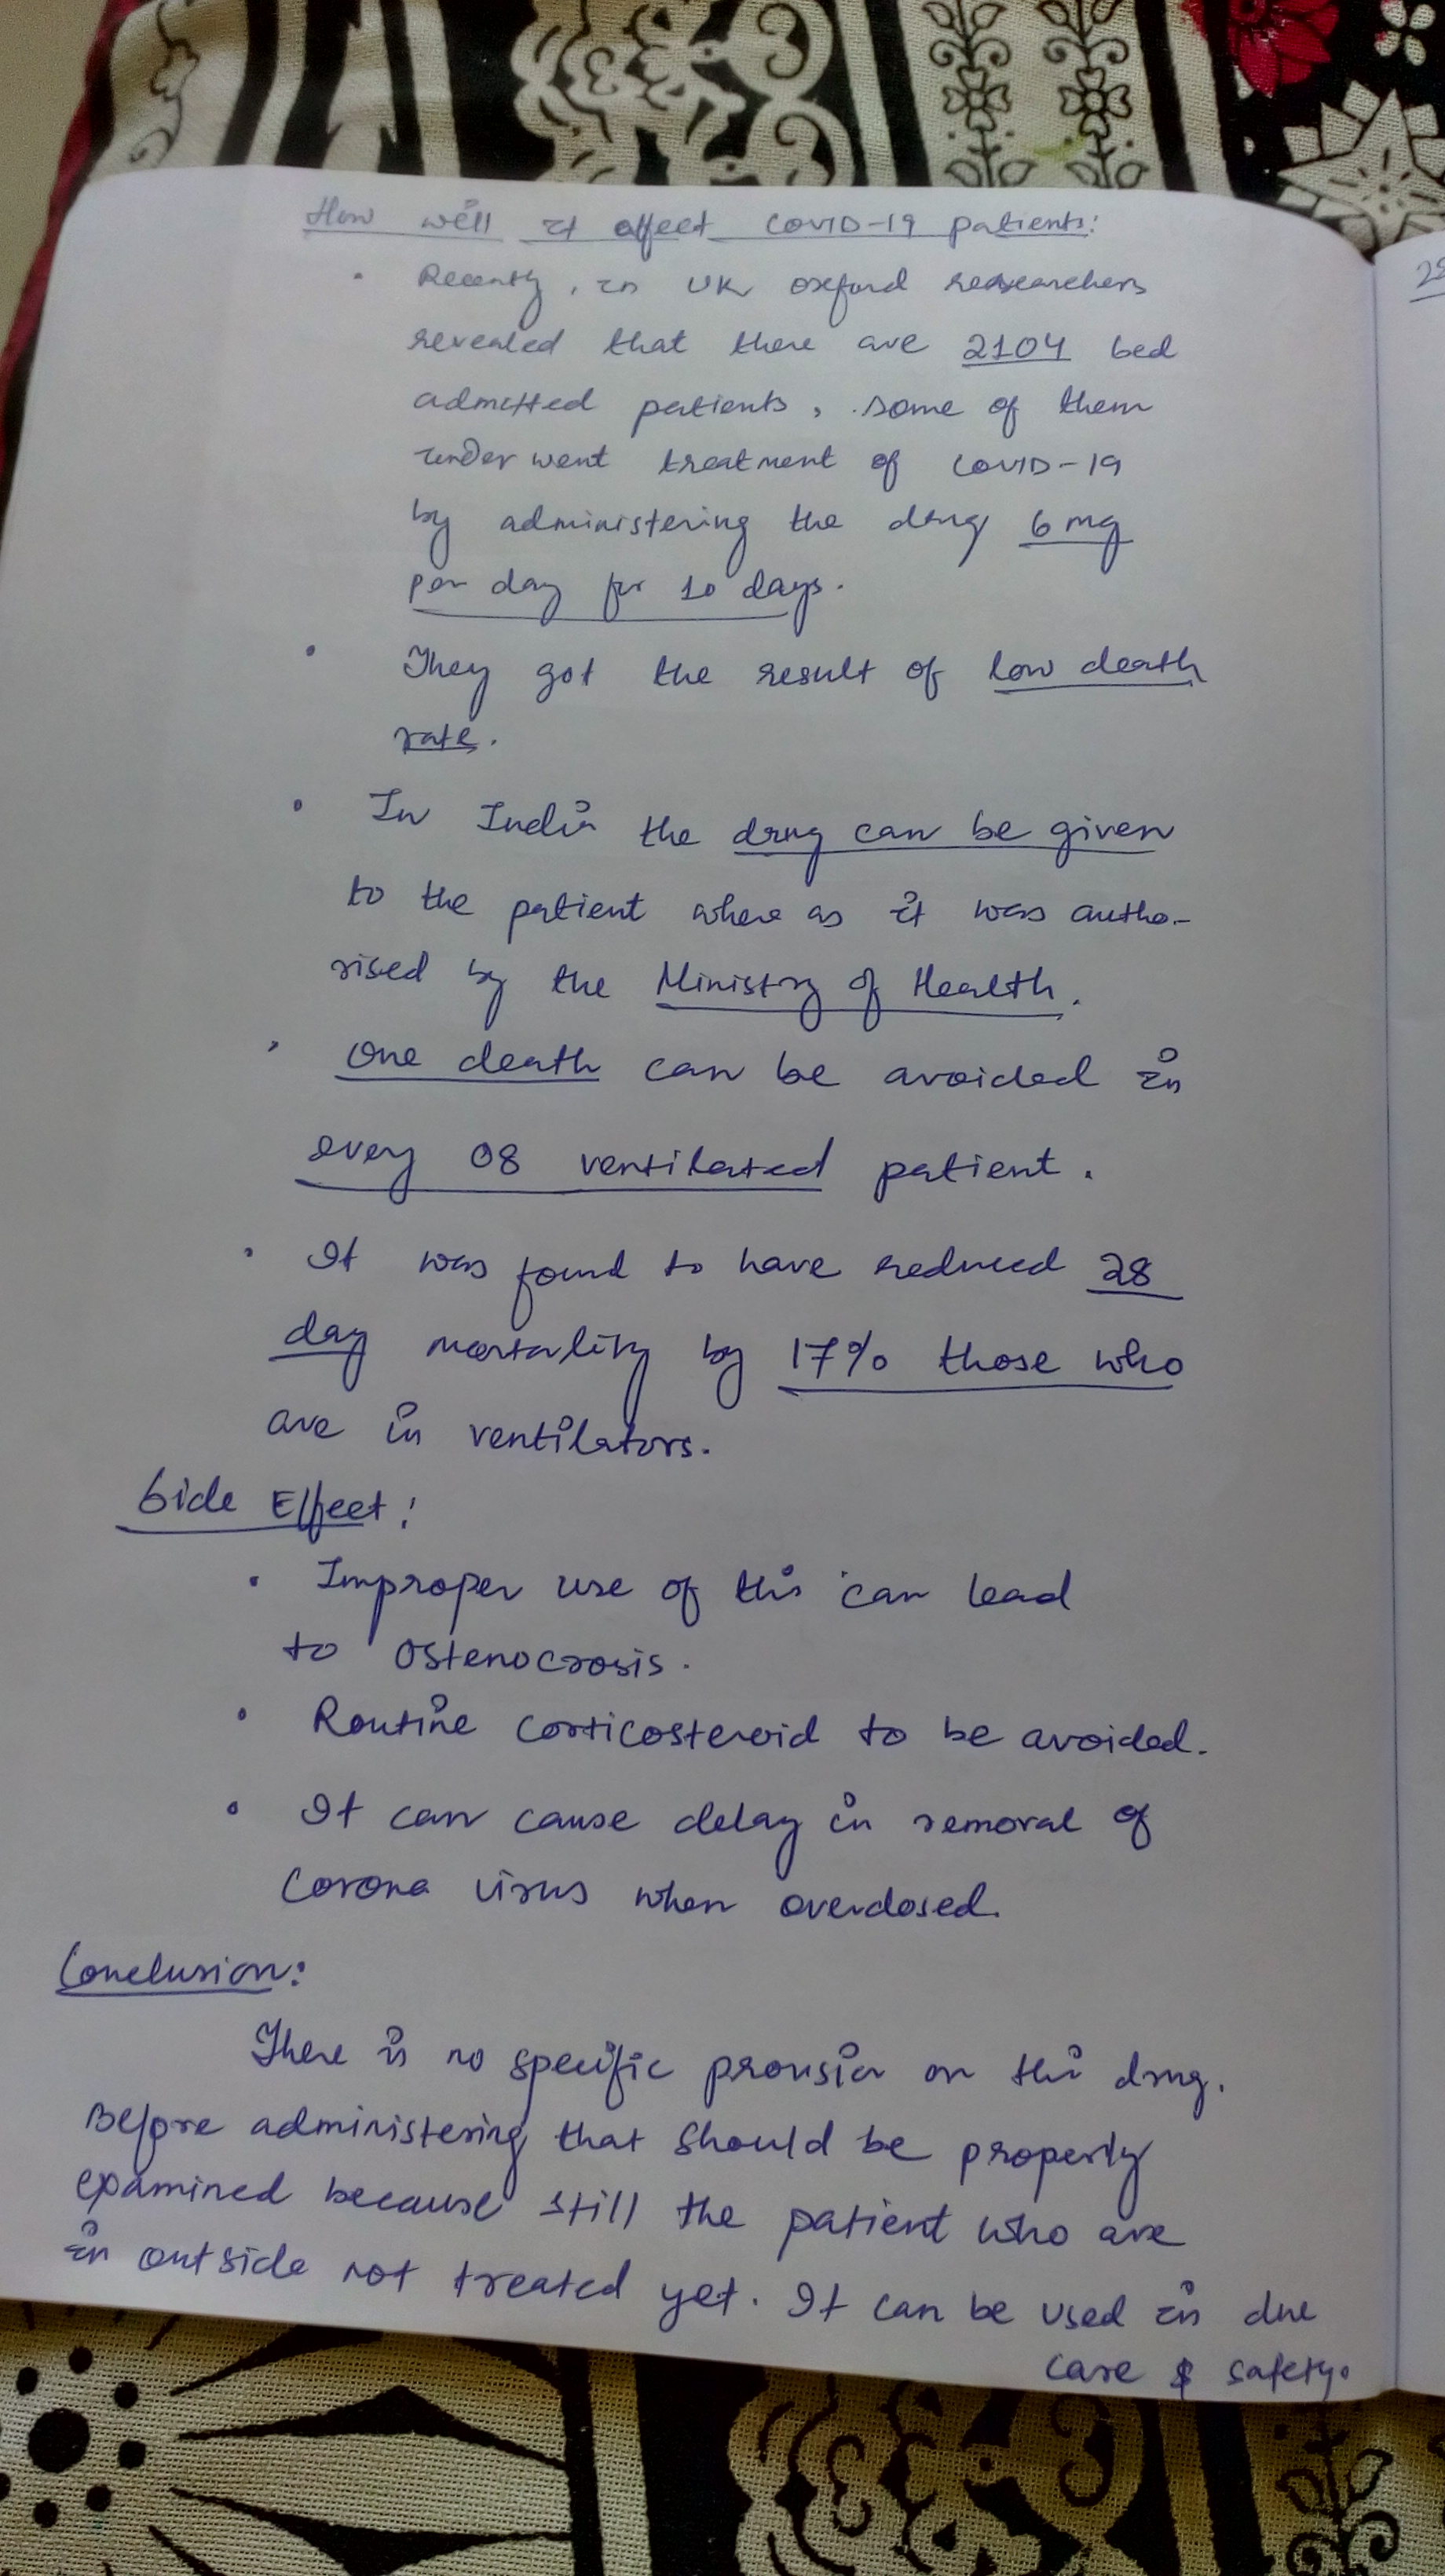 How will it affect COVID-19 patients:
• Recently, in UK Oxford researchers
revealed that there are 2104 bed
admitted patients, some of them
under went treatment of COVID-19
by administering the drug 6 mg
per day for 10 days.
• They got the result of low death
rate.
• In India the drug can be given
to the patient where as it was autho-
rised by the Ministry of Health.
• One death can be avoided in
every 08 ventilated patient.
• It was found to have reduced 28
day mortality by 17% those who
are in ventilators.
Side Effect:
• Improper use of this can lead
to Ostenocrosis.
• Routine corticosteroid to be avoided.
• It can cause delay in removal of
Corona virus when overdosed.
Conclusion:
There is no specific provision on this drug.
Before administering that should be properly
examined because still the patient who are
in outside not treated yet. It can be used in due
care & safety.